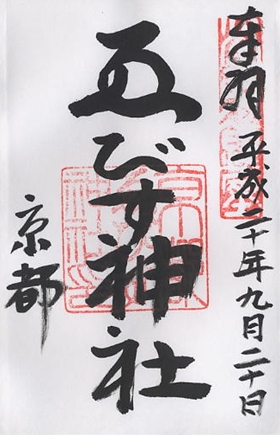 奉拝 平成二十年九月二十日
ゑびす神社
京都